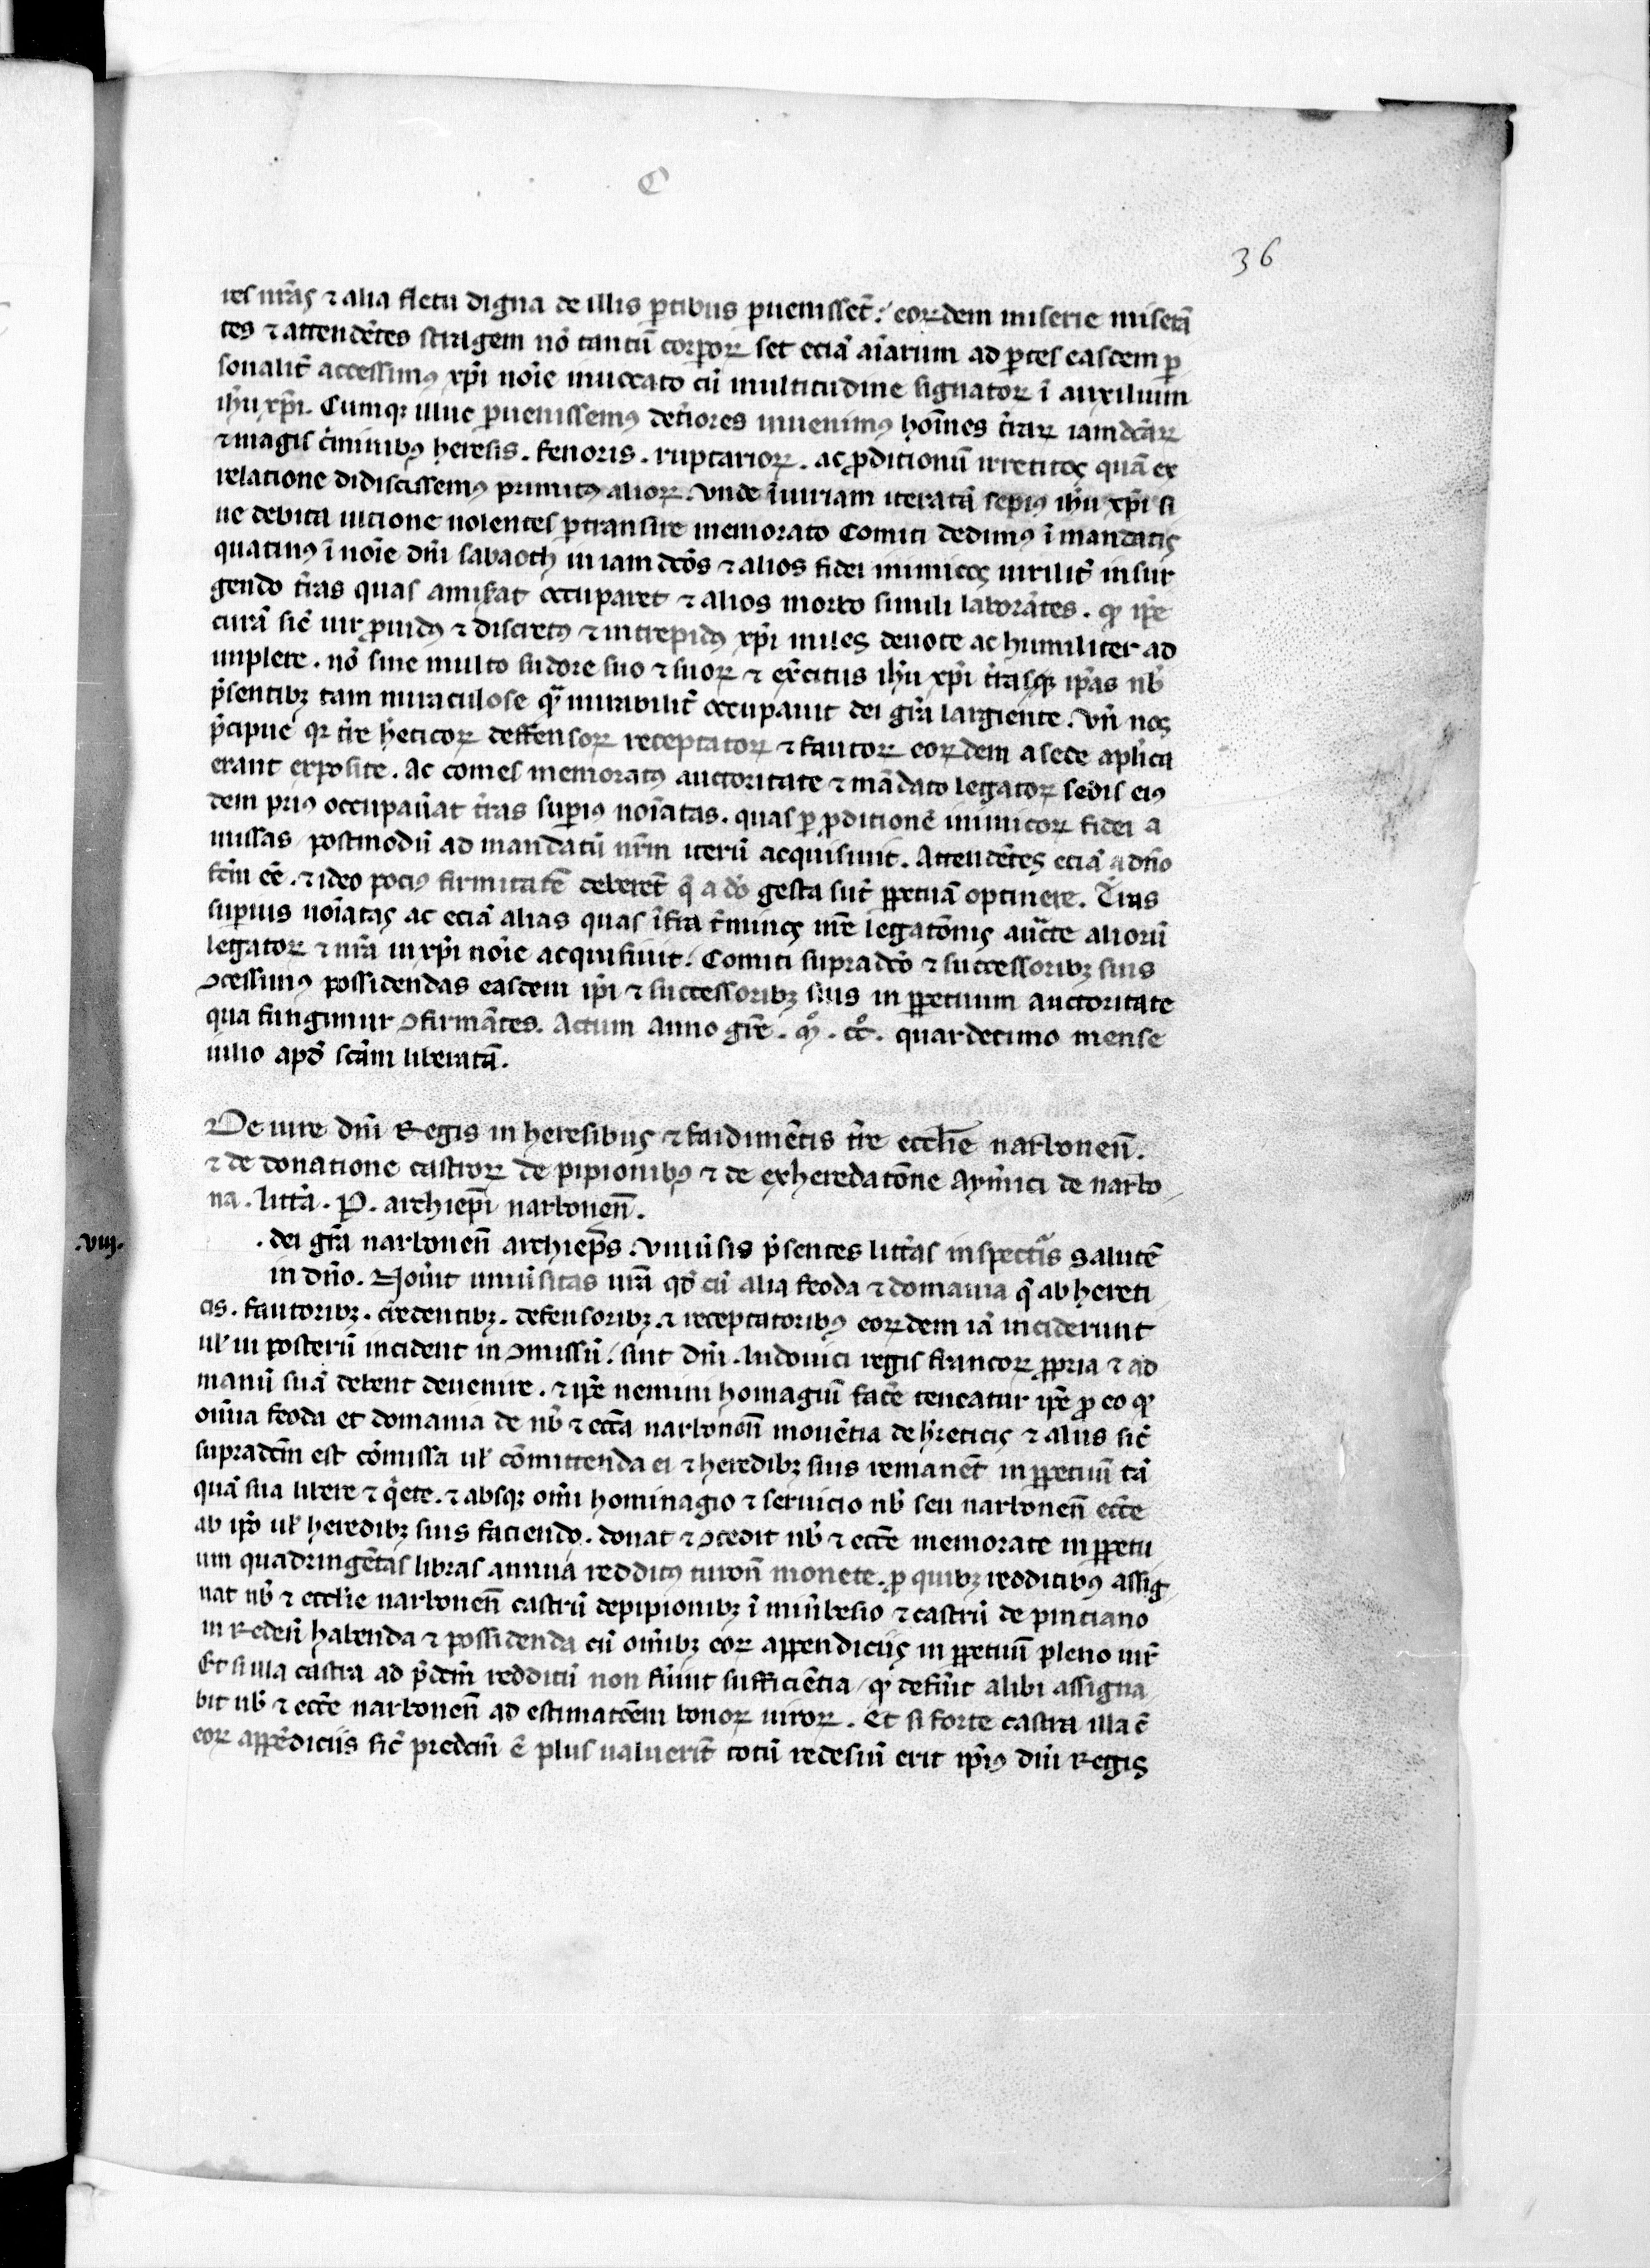 C
36
res nr̃as ⁊ alia fletu digna de illis ꝑtibus ꝑuenissẽt: eoꝝdem miserie miserã
tes ⁊ attendẽtes stragem nõ tantũ corpoꝝ set eciã aĩarum ad ꝑtes eascem ꝑ
sonalit̃ accessimꝰ xp̃i noĩe inuocato cũ multitudine signatoꝝ ĩ auxilium
ihũ xp̃i. Cumqꝫ illuc ꝑuenissemꝰ det̃iores inuenimus hoĩnes t̃raꝝ iamdc̃aꝝ
⁊ magis c̃minibꝰ heresis. fenoris. ruptarioꝝ. ac ꝓditionũ irretitos quã ex
relatione didiscissemꝰ primitꝰ alioꝝ. vnde iniuriam iteratã sepiꝰ ihũ xp̃i si
ne debita ultione nolentes ꝑtransire memorato Comiti dedimꝰ ĩ mandatis
quatinꝰ ĩ noĩe dñi sabaoth in iam dc̃os ⁊ alios fidei inimicos uirilit̃ insur
gendo t̃ras quas amis̃at occuparet ⁊ alios morbo simili laborãtes. qđ ip̃e
curã sic̃ uir ꝓuidꝰ ⁊ discretꝰ ⁊ intrepidꝰ xp̃i miles deuote ac humiliter ad
implere. nõ sine multo sudore suo ⁊ suoꝝ ⁊ exc̃itus ihũ xp̃i t̃rasqꝫ ip̃as nb̃
p̃sentibꝫ tam miraculose qᵃ mirabilit̃ occupauit dei gr̃a largiente. Vñ nos
p̃cipue qꝛ t̃re h̃eticoꝝ deffensoꝝ receptatoꝝ ⁊ fautoꝝ eoꝝdem a sede apl̃ica
erant exposite. Ac comes memoratꝰ auctoritate ⁊ mãdato legatoꝝ sedis eiꝰ
dem priꝰ occupauãt t̃ras suꝑiꝰ noĩatas. quas ꝑ ꝓditionẽ inimicoꝝ fidei a
missas postmodũ ad mandatũ nr̃m iterũ acquisiuit. Attendẽtes eciã a dño
fc̃m eẽ. ⁊ ideo pociꝰ firmitatẽ deberẽt q̃ a dõ gesta sũt ꝑpetuã optinere. T̃ras
suꝑius noĩatas ac eciã alias quas ĩfra t̃minos nr̃e legatõnis auᵃcte aliorũ
legatoꝝ ⁊ nr̃a in xp̃i noĩe acquisiuit. Comiti supradc̃o ⁊ successoribꝫ suis
ꝯcessimꝰ possidendas easdem ip̃i ⁊ successoribꝫ suis in ꝑpetuum auctoritate
qua fungimur ꝯfirmãtes. Actum anno gr̃e. mͦ. ccͦ. quardecimo mense
iulio apđ scãm liberatã.
De iure dñi Regis in heresibus ⁊ faidimẽtis t̃re eccl̃ie narbonen̄.
⁊ de donatione castroꝝ de pipionibꝰ ⁊ de exheredatõne Aym̃ici de narbo
na. litt̃a. P. archiep̃i narbonen̄.
.viij.
. dei gr̃a narbonen̄ archiep̃s. Vniũsis p̃sentes litt̃as inspectᵘis salutẽ
in dño. Nouĩt uniũsitas ur̃a qđ cũ alia feoda ⁊ domania q̃ ab hereti
cis. fautoribꝫ. credentibꝫ. defensoribꝫ. ⁊ receptatoribꝰ eoꝝdem iã inciderunt
uł in posterũ incident in ꝯmissũ. sint dñi. ludouici regis francoꝝ ꝓpria ⁊ ad
manũ suã debent deuenire. ⁊ ip̃e nemini homagiũ fac̃e teneatur ip̃e ꝓ eo qđ
om̃ia feoda et domania de nb̃ ⁊ ecc̃a narbonen̄ mouẽtia de h̃eticis ⁊ aliis sic̃
supradc̃m est cõmissa uł cõmittenda ei ⁊ heredibꝫ suis remanẽt in ꝑpetuũ tã
quã sua libere ⁊ q̃ete. ⁊ absqꝫ om̃i hominagio ⁊ seruicio nb̃ seu narbonen̄ ecc̃e
ab ip̃o uł heredibꝫ suis faciendo. donat ⁊ ꝯcedit nb̃ ⁊ ecc̃e memorate in ꝑpetu
um quadringẽtas libras annui redditꝰ turon̄ monete. ꝓ quibꝫ redditibꝰ assig
nat nb̃ ⁊ eccl̃ie narbonen̄ castrũ de pipionibꝫ ĩ miñbesio ⁊ castrũ de pinciano
in Redeñ habenda ⁊ possidenda cũ om̃ibꝫ eoꝝ appendiciis in ꝑpetuũ pleno iur̃
Et si illa castra ad p̃dc̃m redditũ non fũint sufficiẽtia / qđ defũit alibi assigna
bit nb̃ ⁊ ecc̃e narbonen̄ ad estimatõem bonoꝝ uiroꝝ. Et si forte castra illa c̃
eoꝝ appẽdiciis sic̃ predcm̃ ẽ plus ualuerĩt totũ residuũ erit ip̃iꝰ dñi Regis